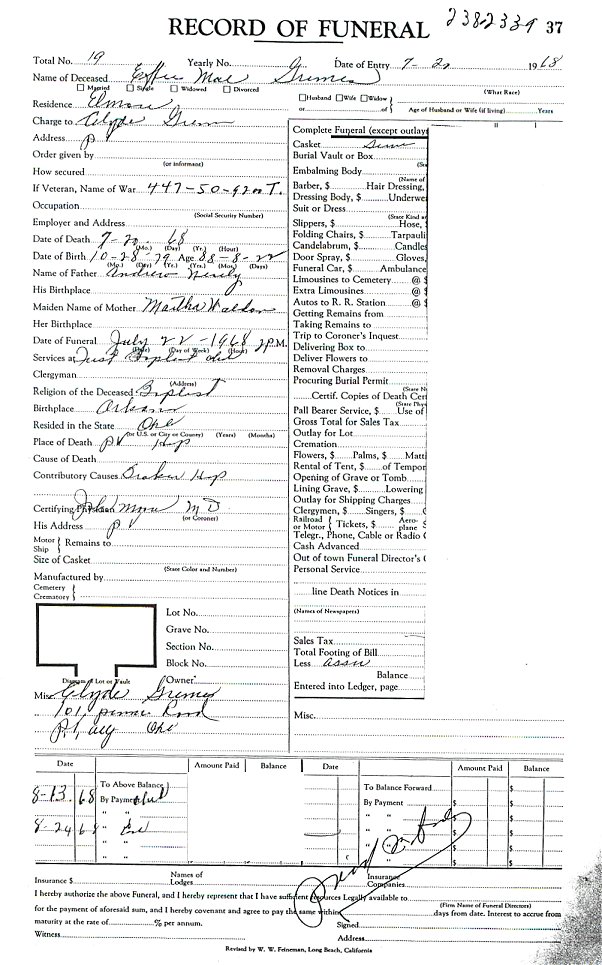 RECORD OF FUNERAL 2382339 37
Total No. 19 Yearly No. Date of Entry 7- 20 1968
Name of Deceased Effie Mae Grimes
Married Single Widowed Divorced
(What Race)
Residence Elmore
Husband Wife Widow
or of Age of Husband or Wife (if living) Years
Charge to Clyde
Address
Order given by
(or informant)
How secured
If Veteran, Name of War 447-50- T.
Occupation
(Social Security Number)
Employer and Address
Date of Death 7-20 68
(Mo.) (Day) (Yr.) (Hour)
Date of Birth 10-28-79 Age 88-8-22
(Mo.) (Day) (Yr.) (Yrs.) (Mos.) (Days)
Name of Father Andrew
His Birthplace
Maiden Name of Mother Martha Waldon
Her Birthplace
Date of Funeral July 22-1968 2 P.M.
(Date) (Day of Week) (Hour)
Services at First Baptist
Clergyman
(Address)
Religion of the Deceased Baptist
Birthplace
Resided in the State
(or U.S. or City or County) (Years) (Months)
Place of Death PV Hosp
Cause of Death
Contributory Causes Broken Hip
Certifying Physician John M D
(or Coroner)
His Address PV
Motor
Ship
Remains to
Size of Casket
(State Color and Number)
Manufactured by
Cemetery
Crematory
Lot No.
Grave No.
Section No.
Block No.
Diagram of Lot or Vault
Owner
Misc. Clyde Grimes
101
Complete Funeral (except outlays
Casket
Burial Vault or Box
Embalming Body
(Name of
Barber, $ Hair Dressing,
Dressing Body, $ Underwe
Suit or Dress
(State Kind a
Slippers, $ Hose,
Folding Chairs, $ Tarpauli
Candelabrum, $ Candles
Door Spray, $ Gloves,
Funeral Car, $ Ambulance
Limousines to Cemetery @ $
Extra Limousines @ $
Autos to R. R. Station @ $
Getting Remains from
Taking Remains to
Trip to Coroner's Inquest
Delivering Box to
Deliver Flowers to
Removal Charges
Procuring Burial Permit
(State N
Certif. Copies of Death Cert
(State Phys
Pall Bearer Service, $ Use of
Gross Total for Sales Tax
Outlay for Lot
Cremation
Flowers, $ Palms, $ Matt
Rental of Tent, $ of Tempor
Opening of Grave or Tomb
Lining Grave, $ Lowering
Outlay for Shipping Charges
Clergymen, $ Singers, $
Railroad or Motor Tickets, $ Aeroplane $
Telegr., Phone, Cable or Radio
Cash Advanced
Out of town Funeral Director's
Personal Service
line Death Notices in
(Names of Newspapers)
Sales Tax
Total Footing of Bill
Less Assn
Balance
Entered into Ledger, page
Misc.
Date Amount Paid Balance Date Amount Paid Balance
8-13 68 To Above Balance To Balance Forward $
By Payment By Payment $
8-24 68 " " " " $
" " " " $
" " " " $
Insurance $ Names of Lodges Insurance Companies
I hereby authorize the above Funeral, and I hereby represent that I have sufficient resources Legally available to
(Firm Name of Funeral Directors)
for the payment of aforesaid sum, and I hereby covenant and agree to pay the same within days from date. Interest to accrue from
maturity at the rate of % per annum. Signed
Witness Address
Revised by W. W. Feineman, Long Beach, California